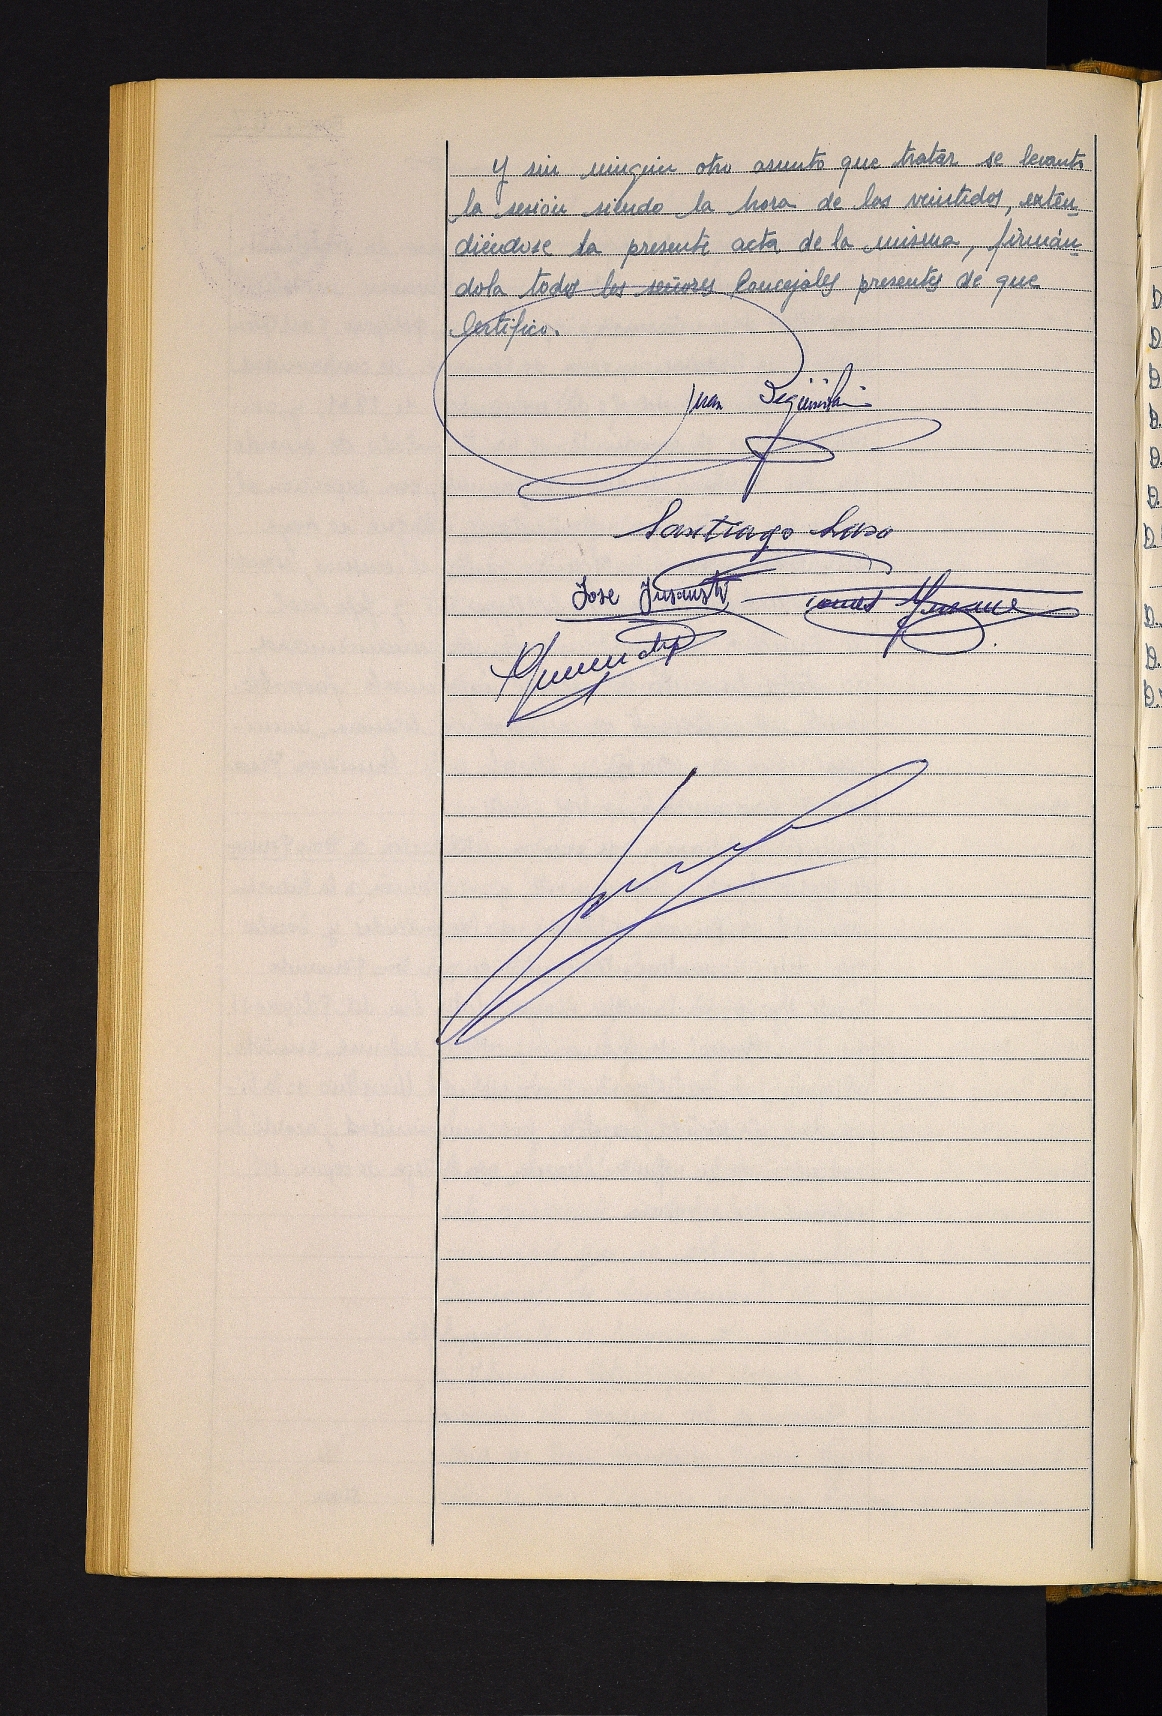 Y sin ningún otro asunto que tratar se levantó
la sesión siendo la hora de las veintidos, exten-
diéndose la presente acta de la misma, firmán-
dola todos los señores Concejales presentes de que
Certifico.
Juan
Santiago Laso
Jose
D
D.
D.
D.
D.
D.
D
D.
D.
D.